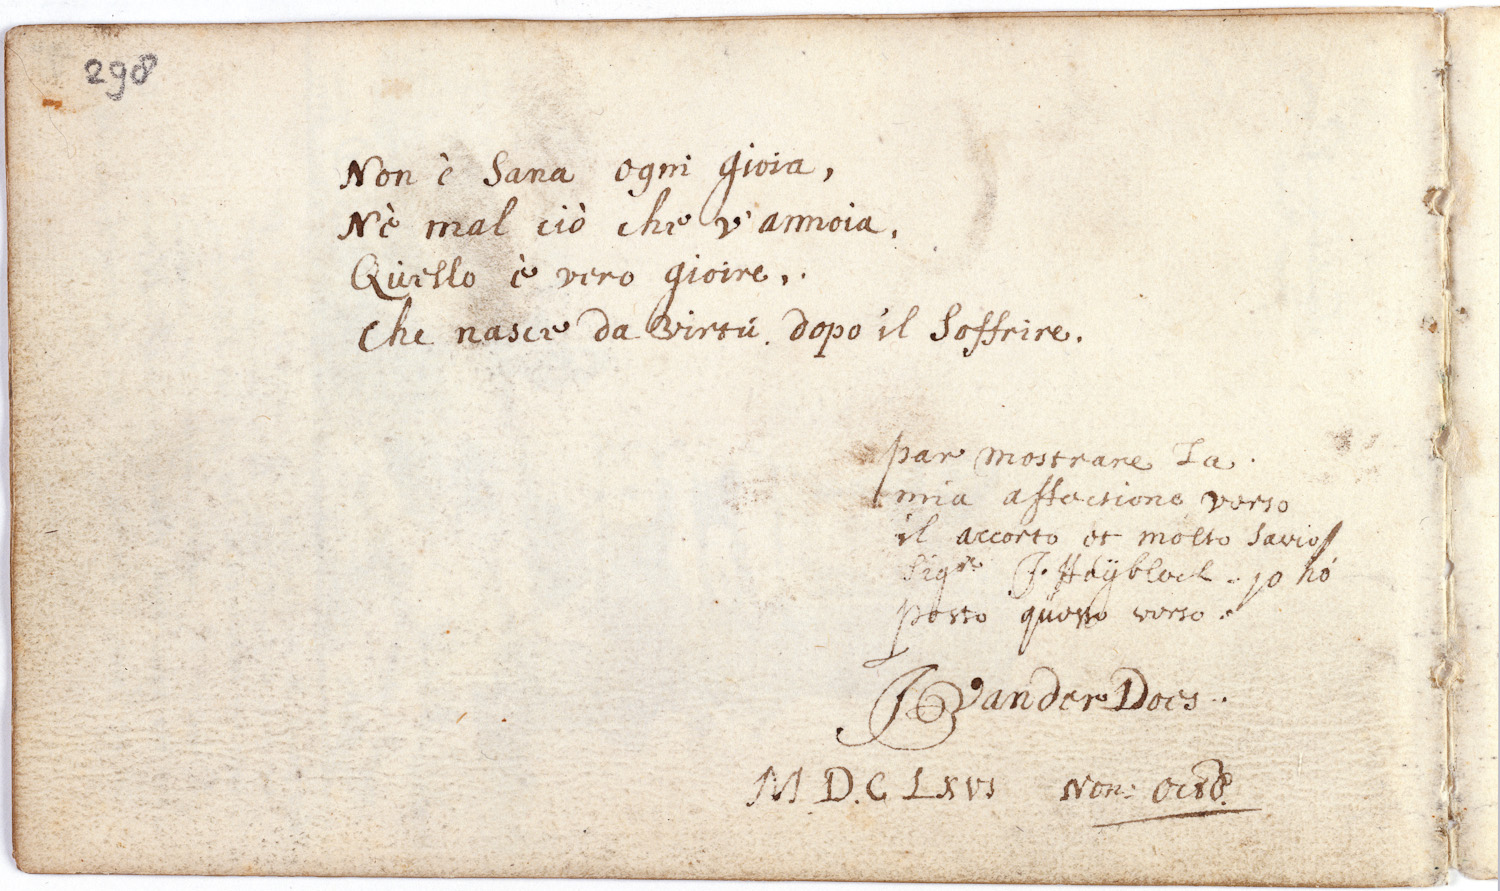 298
Non è Sana ogni gioia,
Nè mal ciò che v'annoia,
Quello è vero gioire,
Che nasce da virtú, dopo il Soffrire.
par mostrare La
mia affectione verso
il accorto et molto Savio
Sigre J. Heyblock. jo hó
posto questo verso.
J vander Does.
M D.C LXVI Non: Octob.